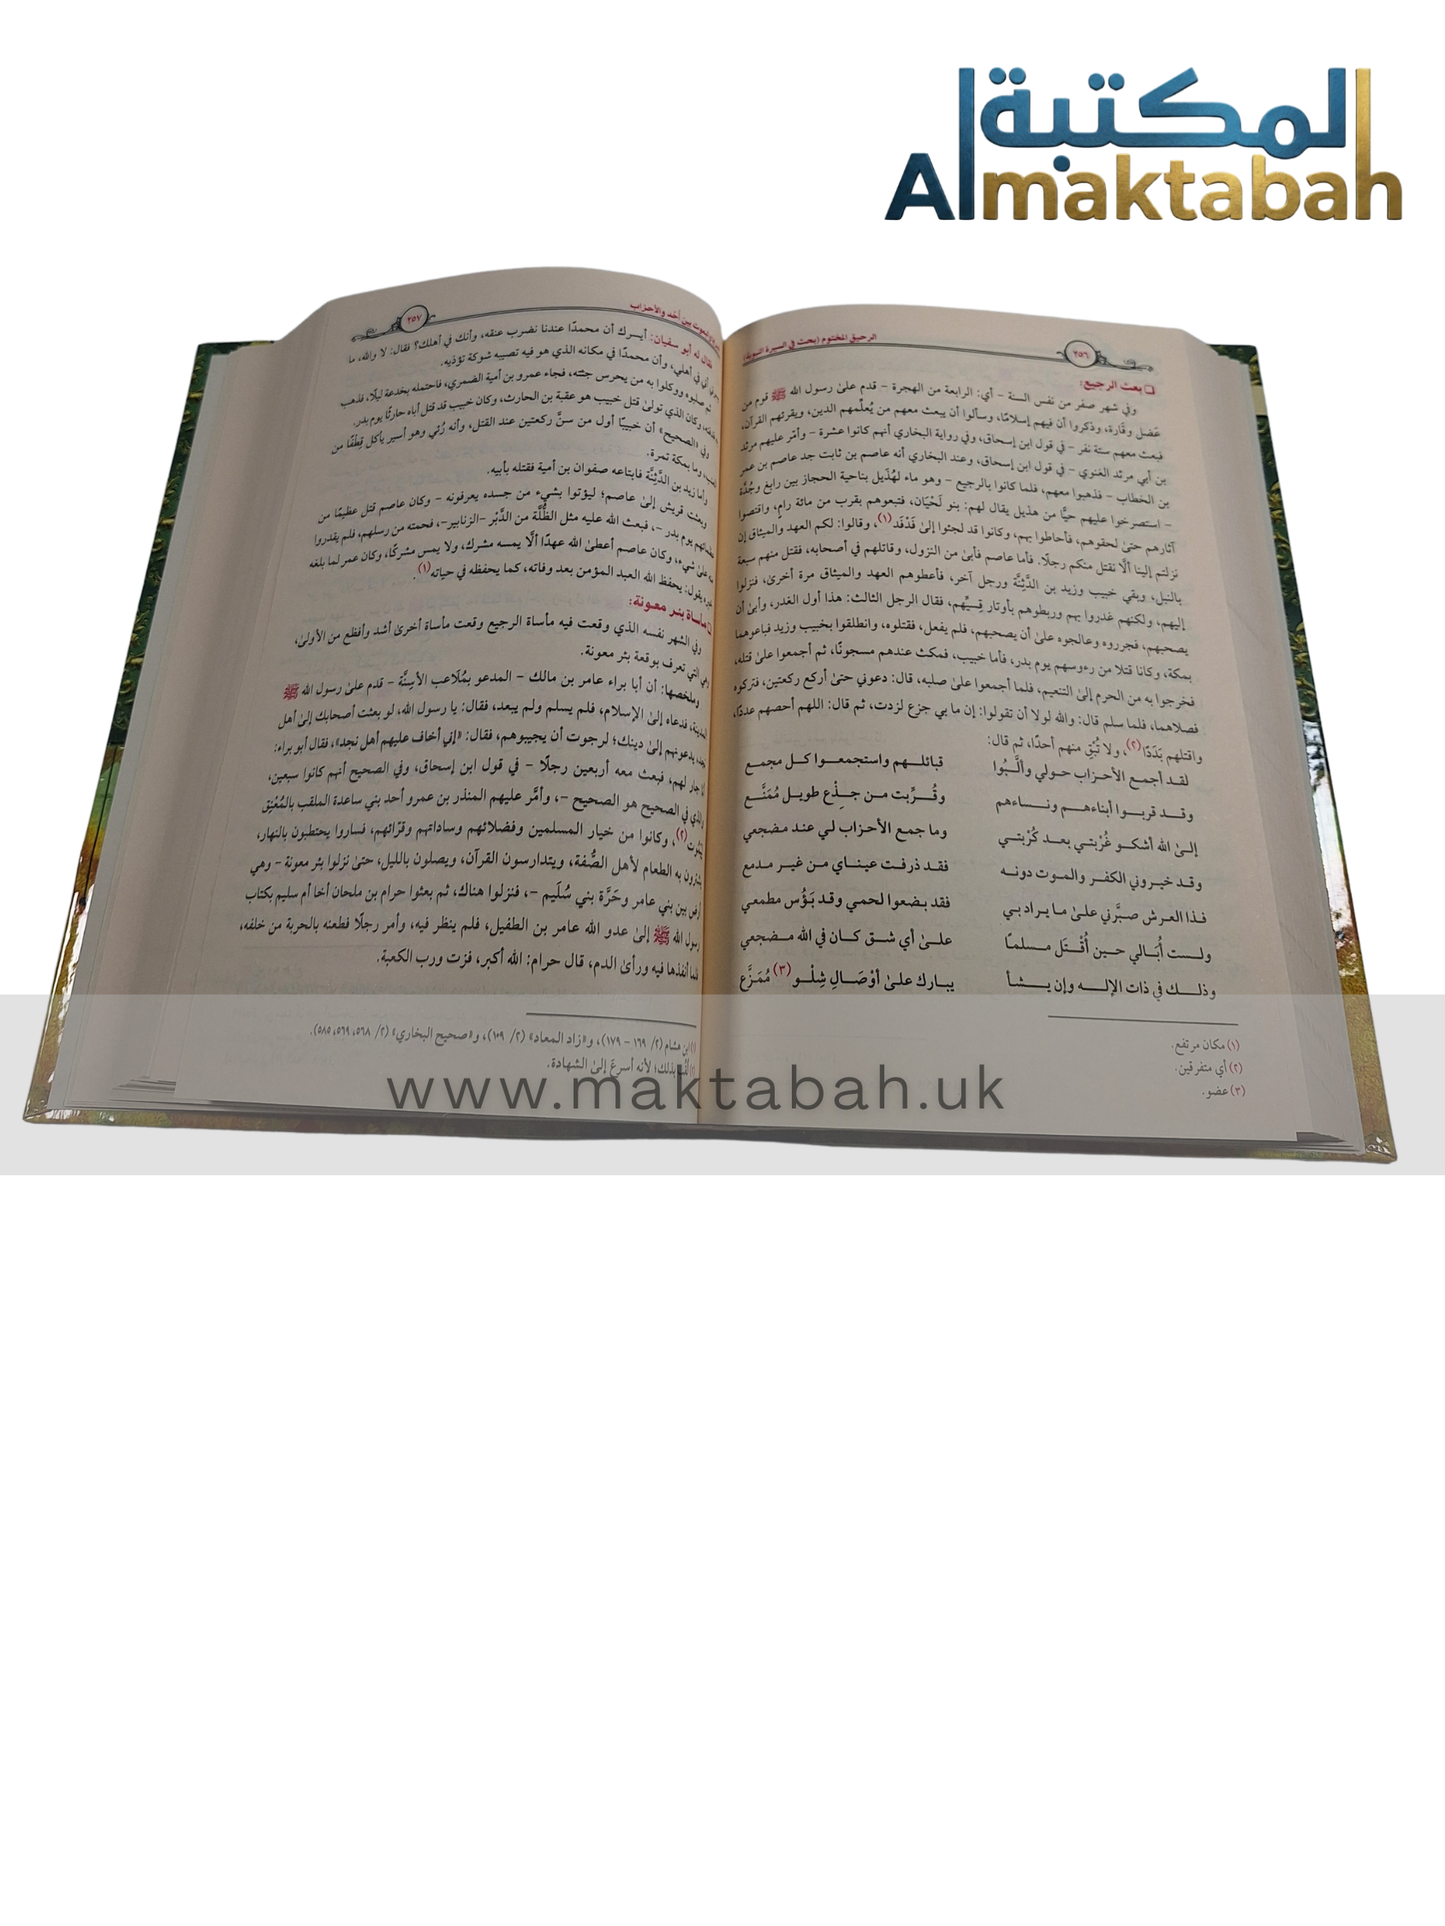 المكتبة
Almaktabah
الرحيق المختوم (بحث في السيرة النبوية)
٢٥٦
❏ بعث الرجيع:
وفي شهر صفر من نفس السنة – أي: الرابعة من الهجرة – قدم على رسول الله ﷺ قوم من
عَضل وقَارة، وذكروا أن فيهم إسلامًا، وسألوا أن يبعث معهم من يُعلِّمهم الدين، ويقرئهم القرآن،
فبعث معهم ستة نفر – في قول ابن إسحاق، وفي رواية البخاري أنهم كانوا عشرة – وأمَّر عليهم مرثد
بن أبي مرثد الغنوي – في قول ابن إسحاق، وعند البخاري أنه عاصم بن ثابت جد عاصم بن عمر
بن الخطاب – فذهبوا معهم، فلما كانوا بالرجيع – وهو ماء لهُذَيل بناحية الحجاز بين رابغ وجُدَّة
– استصرخوا عليهم حيًّا من هذيل يقال لهم: بنو لَحْيَان، فتبعوهم بقرب من مائة رامٍ، واقتصوا
آثارهم حتى لحقوهم، فأحاطوا بهم، وكانوا قد لجئوا إلى فَدْفَد(١)، وقالوا: لكم العهد والميثاق إن
نزلتم إلينا ألَّا نقتل منكم رجلًا. فأما عاصم فأبى من النزول، وقاتلهم في أصحابه، فقتل منهم سبعة
بالنبل، وبقي خبيب وزيد بن الدَّثِنَّة ورجل آخر، فأعطوهم العهد والميثاق مرة أخرى، فنزلوا
إليهم، ولكنهم غدروا بهم وربطوهم بأوتار قِسِيِّهم، فقال الرجل الثالث: هذا أول الغدر، وأبى أن
يصحبهم، فجرروه وعالجوه على أن يصحبهم، فلم يفعل، فقتلوه، وانطلقوا بخبيب وزيد فباعوهما
بمكة، وكانا قتلا من رءوسهم يوم بدر، فأما خبيب، فمكث عندهم مسجونًا، ثم أجمعوا على قتله،
فخرجوا به من الحرم إلى التنعيم، فلما أجمعوا على صلبه، قال: دعوني حتى أركع ركعتين، فتركوه
فصلاهما، فلما سلم قال: والله لولا أن تقولوا: إن ما بي جزع لزدت، ثم قال: اللهم أحصهم عددًا،
واقتلهم بَدَدًا(٢)، ولا تُبْقِ منهم أحدًا، ثم قال:
لقد أجمع الأحزاب حولي وألَّبُوا قبائلهم واستجمعوا كل مجمع
وقد قربوا أبناءهم ونساءهم وقُرِّبت من جذْع طويل مُمَنَّع
إلى الله أشكو غُرْبتي بعد كُرْبتي وما جمع الأحزاب لي عند مضجعي
وقد خيروني الكفر والموت دونه فقد ذرفت عيناي من غير مدمع
فذا العرش صبَّرني على ما يراد بي فقد بضعوا لحمي وقد بَؤُس مطمعي
ولست أُبَالي حين أُقْتَل مسلمًا على أي شق كان في الله مضجعي
وذلك في ذات الإله وإن يشأ يبارك على أوْصَالِ شِلْو(٣) مُمَزَّع
(١) مكان مرتفع.
(٢) أي متفرقين.
(٣) عضو.
بين أحد والأحزاب
٢٥٧
فقال له أبو سفيان: أيسرك أن محمدًا عندنا نضرب عنقه، وأنك في أهلك؟ فقال: لا والله، ما
أني في أهلي، وأن محمدًا في مكانه الذي هو فيه تصيبه شوكة تؤذيه.
ثم صلبوه ووكلوا به من يحرس جثته، فجاء عمرو بن أمية الضمري، فاحتمله بخدعة ليلًا، فذهب
وكان الذي تولى قتل خبيب هو عقبة بن الحارث، وكان خبيب قد قتل أباه حارثًا يوم بدر.
وفي «الصحيح» أن خبيبًا أول من سنَّ ركعتين عند القتل، وأنه رُئي وهو أسير يأكل قِطْفًا من
وما بمكة تمرة.
وأما زيد بن الدَّثِنَّة فابتاعه صفوان بن أمية فقتله بأبيه.
وبعثت قريش إلى عاصم؛ ليؤتوا بشيء من جسده يعرفونه – وكان عاصم قتل عظيمًا من
يوم بدر –، فبعث الله عليه مثل الظُّلَّة من الدَّبْر –الزنابير–، فحمته من رسلهم، فلم يقدروا
على شيء، وكان عاصم أعطى الله عهدًا ألَّا يمسه مشرك، ولا يمس مشركًا، وكان عمر لما بلغه
يقول: يحفظ الله العبد المؤمن بعد وفاته، كما يحفظه في حياته(١).
❏ مأساة بئر معونة:
وفي الشهر نفسه الذي وقعت فيه مأساة الرجيع وقعت مأساة أخرى أشد وأفظع من الأولى،
وهي التي تعرف بوقعة بئر معونة.
وملخصها: أن أبا براء عامر بن مالك – المدعو بمُلَاعب الأسِنَّة – قدم على رسول الله ﷺ
المدينة، فدعاه إلى الإسلام، فلم يسلم ولم يبعد، فقال: يا رسول الله، لو بعثت أصحابك إلى أهل
نجد يدعونهم إلى دينك؛ لرجوت أن يجيبوهم، فقال: «إني أخاف عليهم أهل نجد»، فقال أبو براء:
أنا جار لهم، فبعث معه أربعين رجلًا – في قول ابن إسحاق، وفي الصحيح أنهم كانوا سبعين،
والذي في الصحيح هو الصحيح –، وأمَّر عليهم المنذر بن عمرو أحد بني ساعدة الملقب بالمُعْنِق
ليموت(٢)، وكانوا من خيار المسلمين وفضلائهم وساداتهم وقرّائهم، فساروا يحتطبون بالنهار،
يشترون به الطعام لأهل الصُّفة، ويتدارسون القرآن، ويصلون بالليل، حتى نزلوا بئر معونة – وهي
أرض بين بني عامر وحَرَّة بني سُلَيم –، فنزلوا هناك، ثم بعثوا حرام بن ملحان أخا أم سليم بكتاب
رسول الله ﷺ إلى عدو الله عامر بن الطفيل، فلم ينظر فيه، وأمر رجلًا فطعنه بالحربة من خلفه،
فلما أنفذها فيه ورأى الدم، قال حرام: الله أكبر، فزت ورب الكعبة.
(١) ابن هشام (٢/ ١٦٩ – ١٧٩)، و«زاد المعاد» (٢/ ١٠٩)، و«صحيح البخاري» (٢/ ٥٦٨، ٥٦٩، ٥٨٥).
لقب بذلك؛ لأنه أسرعَ إلى الشهادة.
www.maktabah.uk